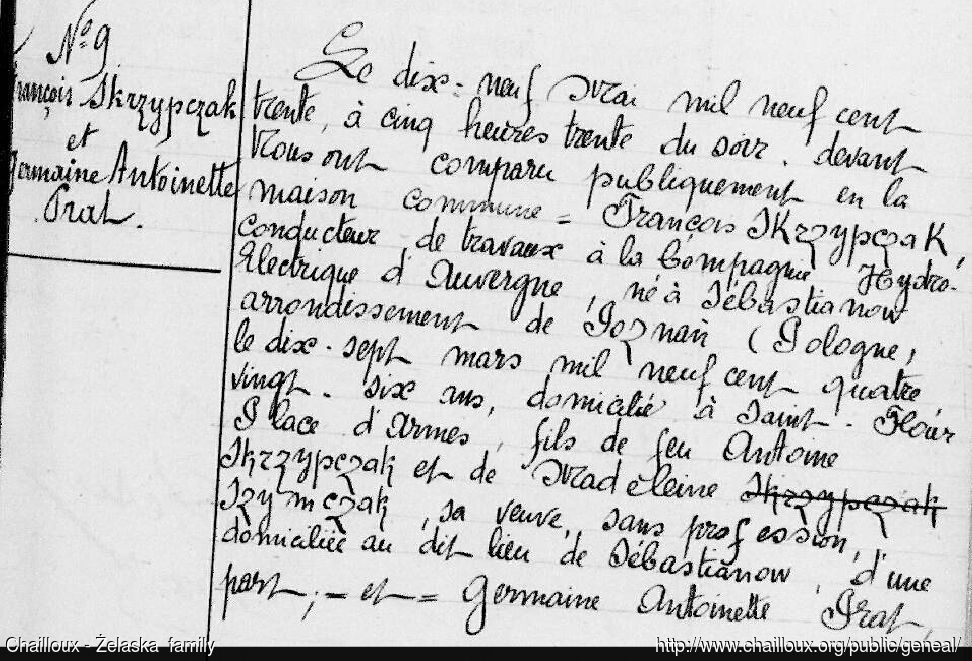 N° 9
François Skrzypczak
et
Germaine Antoinette
Prat.
Le dix-neuf Mai mil neuf cent
trente, à cinq heures trente du soir. devant
Nous ont comparu publiquement en la
maison commune = François Skrzypczak,
conducteur de travaux à la Compagnie Hydro-
Electrique d'Auvergne, né à Sébastianow
arrondissement de Poznań (Pologne,
le dix-sept mars mil neuf cent quatre
vingt-six ans, domicilié à Saint-Flour
Place d'Armes, fils de feu Antoine
Skrzypczak et de Madeleine Skrzypczak
Szymczak, sa veuve, sans profession,
domiciliée au dit lieu de Sébastianow, d'une
part; - et = Germaine Antoinette Prat,
Chailloux - Żelaska family
http://www.chailloux.org/public/geneal/